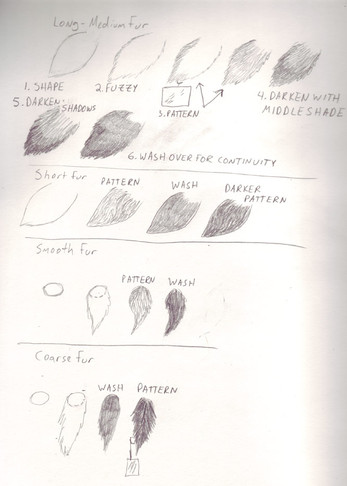 Long-Medium Fur
1. SHAPE
2. FUZZY
3. PATTERN
4. DARKEN WITH
MIDDLE SHADE
5. DARKEN
SHADOWS
6. WASH OVER FOR CONTINUITY
Short fur
PATTERN
WASH
DARKER
PATTERN
Smooth fur
PATTERN
WASH
Coarse fur
WASH
PATTERN